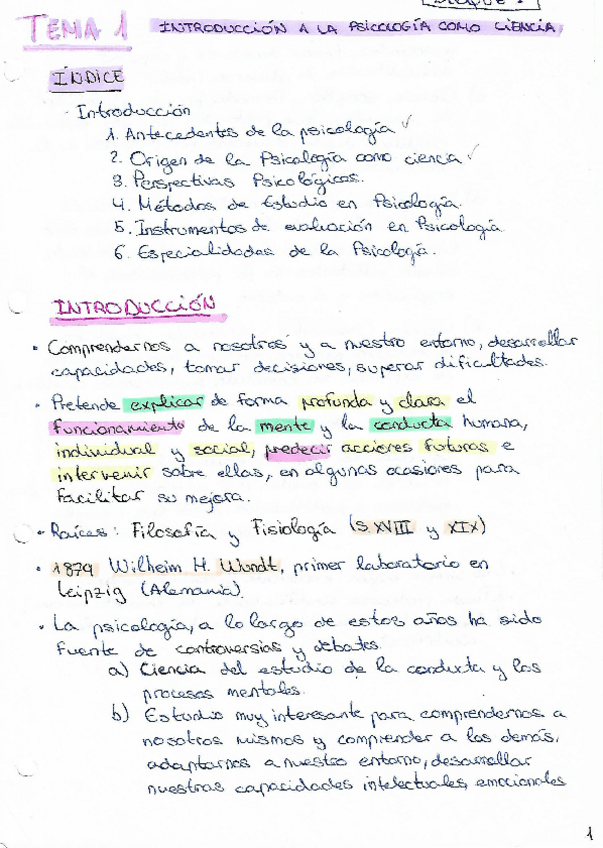 TEMA 1 INTRODUCCIÓN A LA PSICOLOGÍA COMO CIENCIA
ÍNDICE
· Introducción
1. Antecedentes de la psicología ✓
2. Origen de la Psicología como ciencia ✓
3. Perspectivas Psicológicas.
4. Métodos de Estudio en Psicología.
5. Instrumentos de evaluación en Psicología
6. Especialidades de la Psicología.
INTRODUCCIÓN
• Comprendernos a nosotros y a nuestro entorno, desarrollar
capacidades, tomar decisiones, superar dificultades.
• Pretende explicar de forma profunda y clara el
funcionamiento de la mente y la conducta humana,
individual y social, predecir acciones futuras e
intervenir sobre ellas, en algunas ocasiones para
facilitar su mejora.
• Raíces: Filosofía y Fisiología (S. XVIII y XIX)
• 1879 Wilheim H. Wundt, primer laboratorio en
Leipzig (Alemania).
• La psicología, a lo largo de estos años ha sido
fuente de controversias y debates.
a) Ciencia del estudio de la conducta y los
procesos mentales.
b) Estudio muy interesante para comprendernos a
nosotros mismos y comprender a los demás,
adaptarnos a nuestro entorno, desarrollar
nuestras capacidades intelectuales, emocionales
1